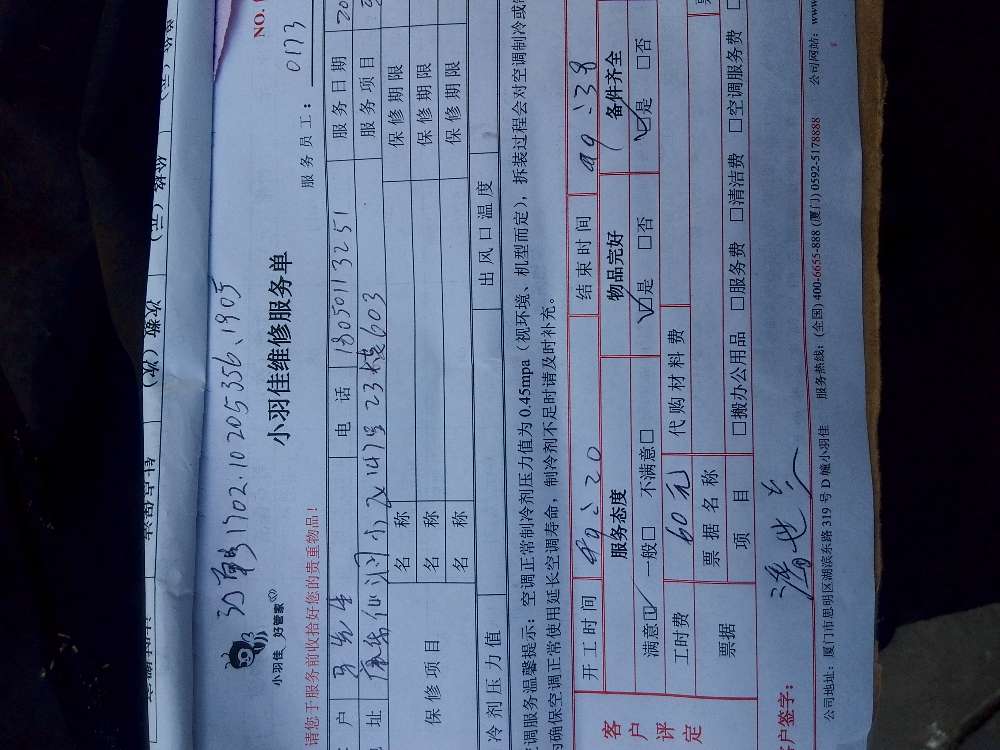 1702.10205356.1905
小羽佳 好管家
小羽佳维修服务单
NO.
请您于服务前收拾好您的贵重物品!
服务员工: 0173
户 马先生 电话 18050113251 服务日期 20
址 23楼603 服务项目
保修项目 名称 保修期限
名称 保修期限
名称 保修期限
冷剂压力值 出风口温度
调服务温馨提示: 空调正常制冷剂压力值为 0.45mpa (视环境、机型而定), 拆装过程会对空调制冷或
为确保空调正常使用延长空调寿命, 制冷剂不足时请及时补充。
客户评定
开工时间 结束时间
服务态度 物品完好 备件齐全
满意☑ 一般□ 不满意□ ☑是 □否 ☑是 □否
工时费 60元 代购材料费
票据 票据名称
项目 □搬办公用品 □服务费 □清洁费 □空调服务费
户签字:
公司地址: 厦门市思明区湖滨东路 319 号 D 幢小羽佳 服务热线: (全国) 400-6655-888 (厦门) 0592-5178888 公司网站: www